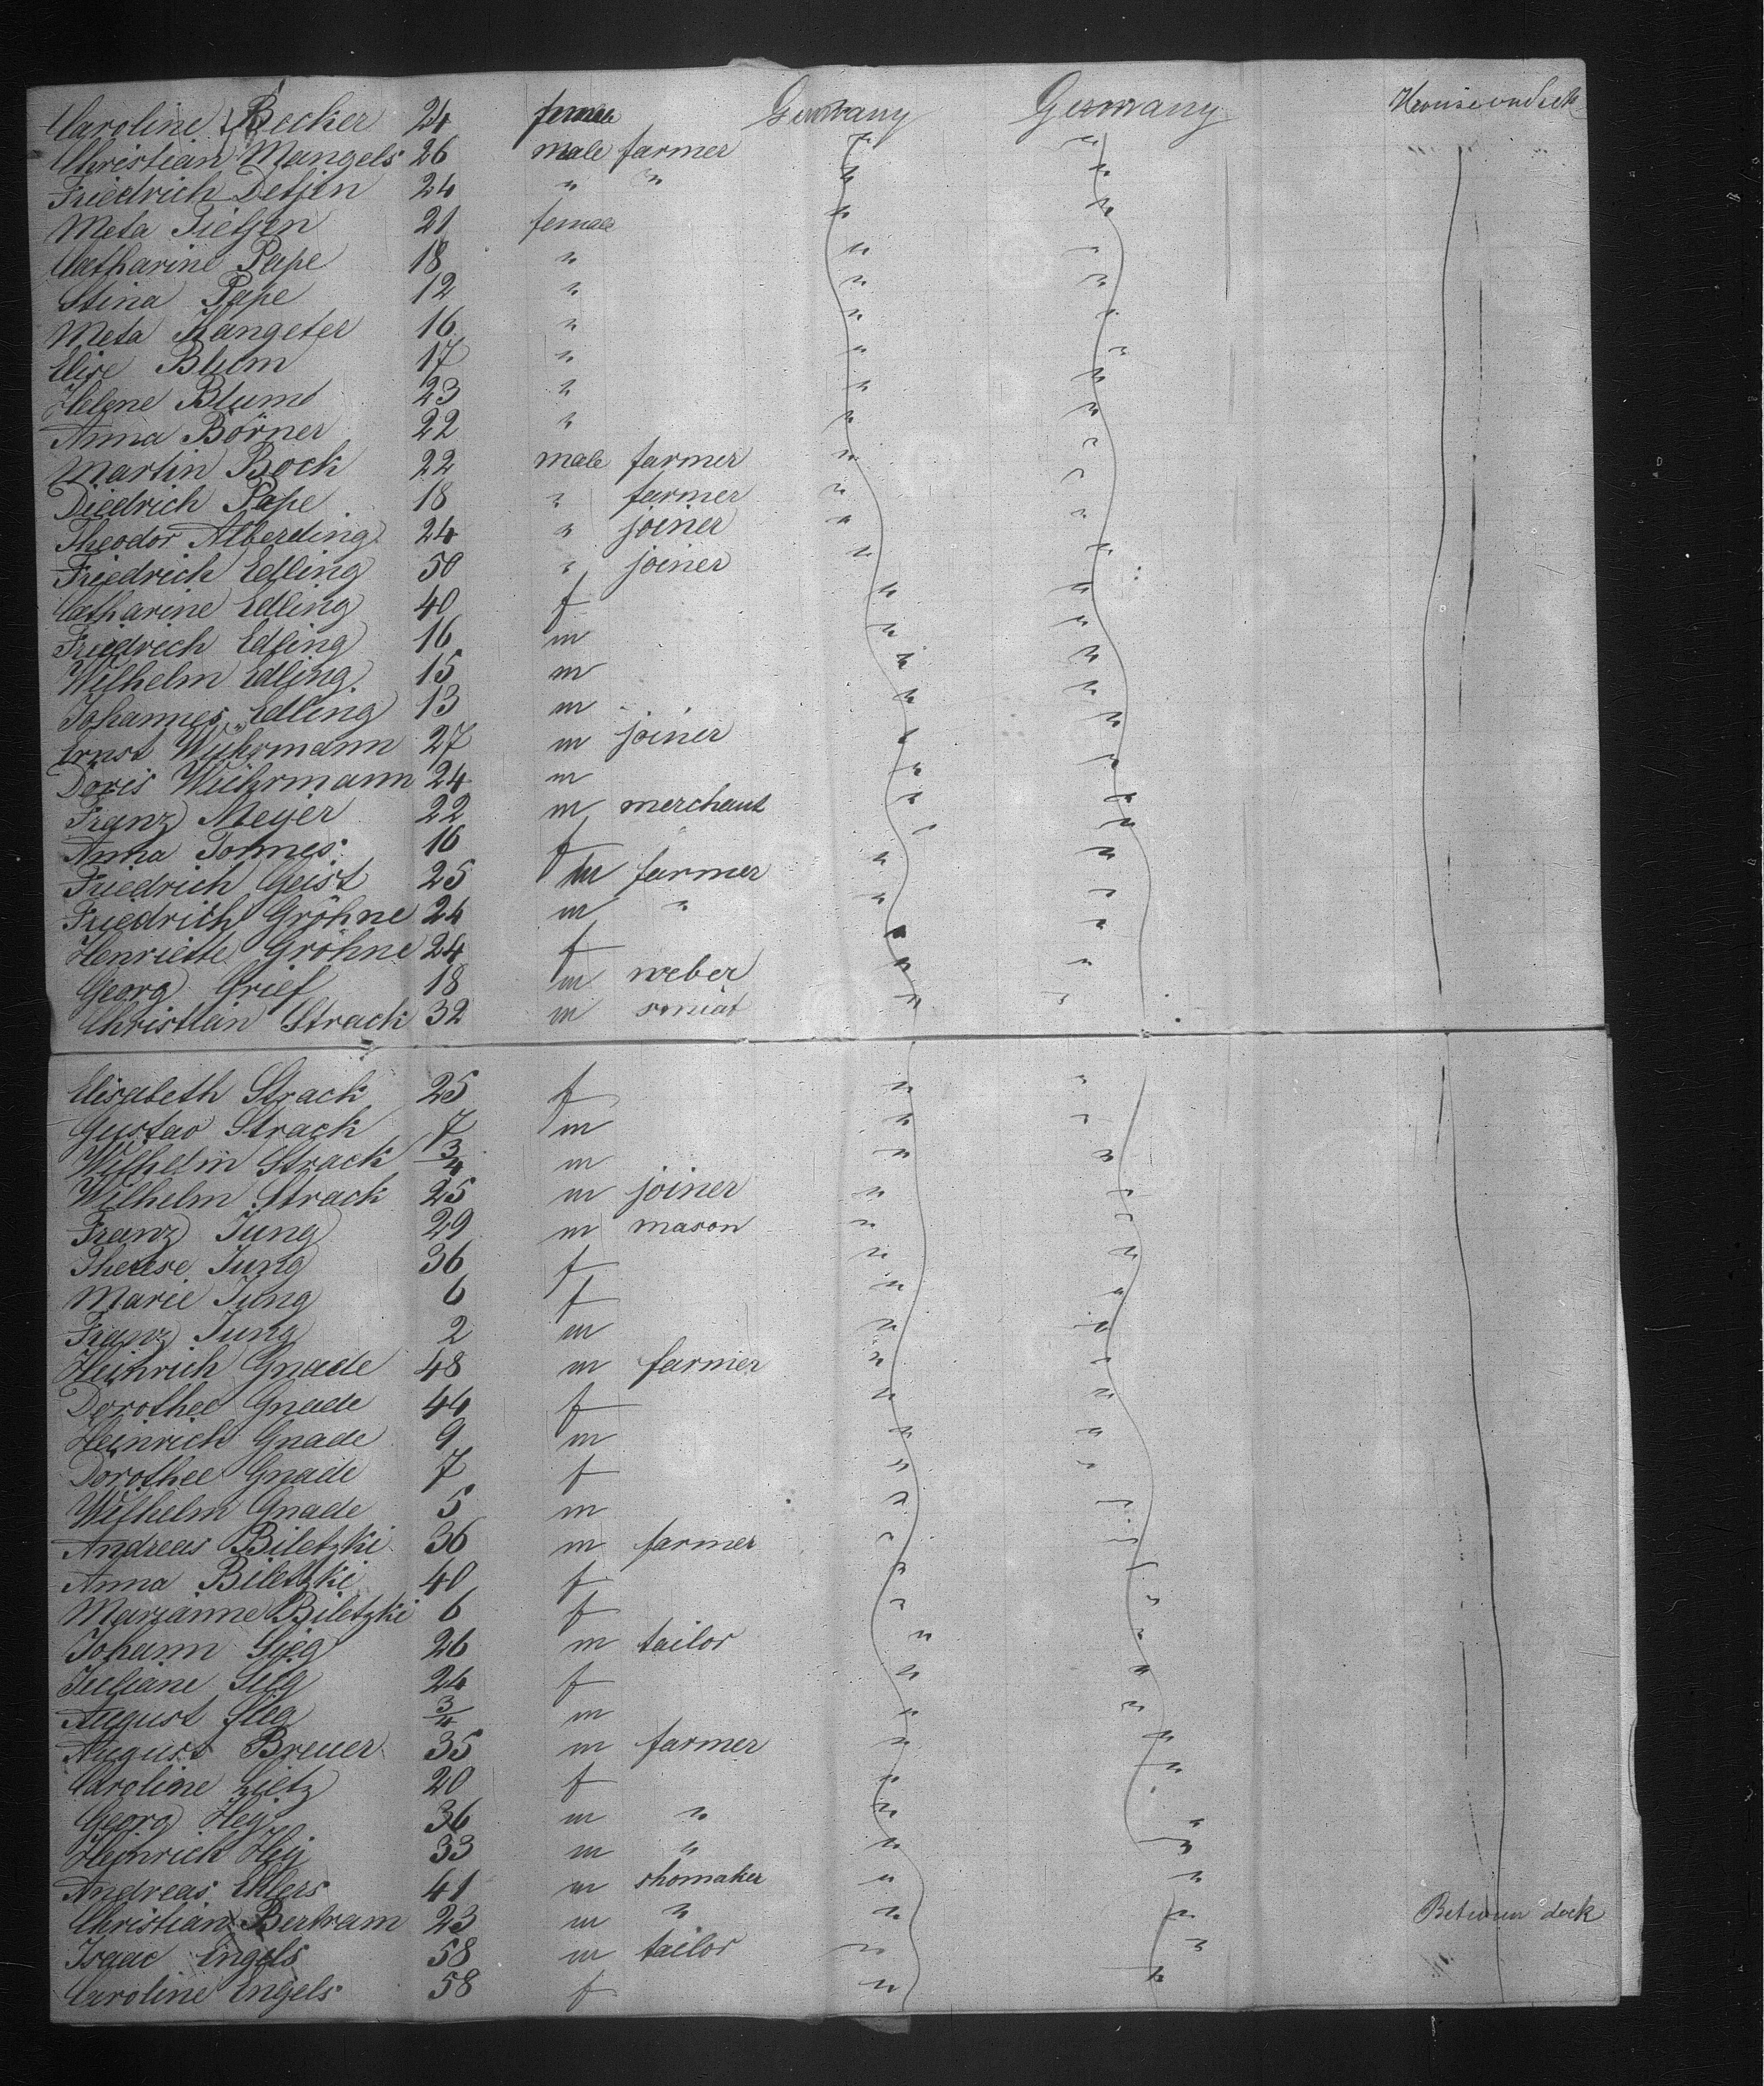 Caroline Becker 24 female Germany Germany House on deck
Christian Mangels 26 male farmer " "
Friedrich Detjen 24 " " " "
Meta Tietjen 21 female " "
Catharine Pape 18 " " "
Stina Pape 12 " " "
Meta 16 " " "
Elise Blum 17 " " "
Helene Blum 23 " " "
Anna Börner 22 " " "
Martin Bock 22 male farmer " "
Diedrich Pape 18 " farmer " "
Theodor Alberding 24 " joiner " "
Friedrich Edling 50 " joiner " "
Catharine Edling 40 f " "
Friedrich Edling 16 m " "
Wilhelm Edling 15 m " "
Johannes Edling 13 m " "
Ernst Wührmann 27 m joiner " "
Doris Wührmann 24 m " "
Franz Meyer 22 m merchant " "
Anna Tonnes 16 f " "
Friedrich Geist 25 m farmer " "
Friedrich Gröhne 24 m " " "
Henriette Gröhne 24 f " "
Georg Grief 18 m weber " "
Christian Strack 32 m " "
Elisabeth Strack 25 f " "
Gustav Strack 7 m " "
Wilhelm Strack 3/4 m " "
Wilhelm Strack 25 m joiner " "
Franz Jung 29 m mason " "
Therese Jung 36 f " "
Marie Jung 6 f " "
Franz Jung 2 m " "
Heinrich Gnade 48 m farmer " "
Dorothee Gnade 44 f " "
Heinrich Gnade 9 m " "
Dorothee Gnade 7 f " "
Wilhelm Gnade 5 m " "
Andreas Biletzki 36 m farmer " "
Anna Biletzki 40 f " "
Marianne Biletzki 6 f " "
Johann Sieg 26 m tailor " "
Juliane Sieg 24 f " "
August Sieg 3/4 m " "
August Breuer 35 m farmer " "
Caroline Lietz 20 f " "
Georg Hey 36 m " " "
Heinrich Hey 33 m " " "
Andreas Ehlers 41 m shomaker " "
Christian Bertram 23 m " " " Between deck
Isaac Engels 58 m tailor " "
Caroline Engels 58 f " "